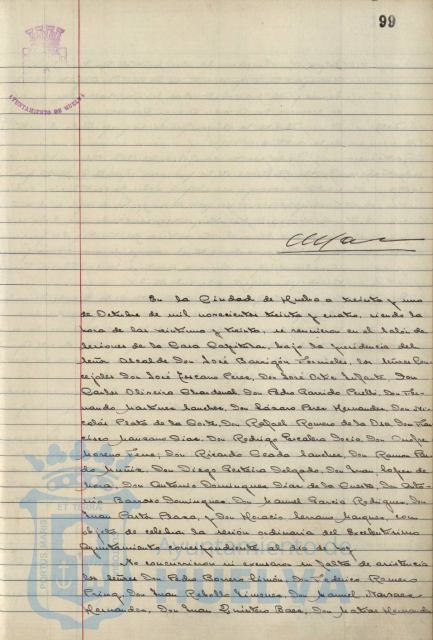 99
AYUNTAMIENTO DE HUELVA
En la Ciudad de Huelva a treinta y uno
de Octubre de mil novecientos treinta y cuatro, siendo la
hora de las veintiuna y treinta, se reunieron en el Salón de
Sesiones de la Casa Capitular, bajo la presidencia del
Señor Alcalde Don José Barrigón Fornieles, los Señores Con-
cejales Don José Toscano Perez, Don José Ortiz Infante, Don
Carlos Oliveira Chardenal, Don Pedro Garrido Perelló, Don Fer-
nando Martinez Sanchez, Don Lázaro Perez Hernandez, Don Ni-
colás Prats de la Don Rafael Romero de la Don Fran-
cisco Manzano Dias, Don Rodrigo Don Onofre
Moreno Don Ricardo Sanchez, Don Ramon
Muñiz, Don Diego Delgado, Don Juan Lopez de
Don Antonio Dominguez Diaz de la Don
Barroso Dominguez, Don Manuel Garcia Rodriguez, Don
Juan Baza, y Don Horacio Marquez, con
objeto de celebrar la sesión ordinaria del Excelentisimo
Ayuntamiento correspondiente al día de hoy
No concurrieron ni excusaron su falta de asistencia
los señores Don Pedro Borrero Limón, Don Federico Romero
Don Juan Rebollo Jimenez, Don Manuel Narvaez
Hernandez, Don Juan Quintero Baez, Don Matias Hernandez
PORTUS MARIS
ET TERRAE
Ayuntamiento de
HUELVA